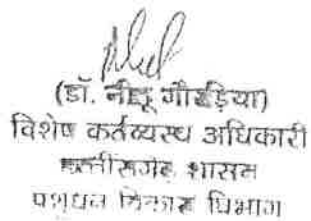 (डॉ. नीलू गौरड़िया)
विशेष कर्तव्यस्थ अधिकारी
छत्तीसगढ़ शासन
पशुधन विकास विभाग